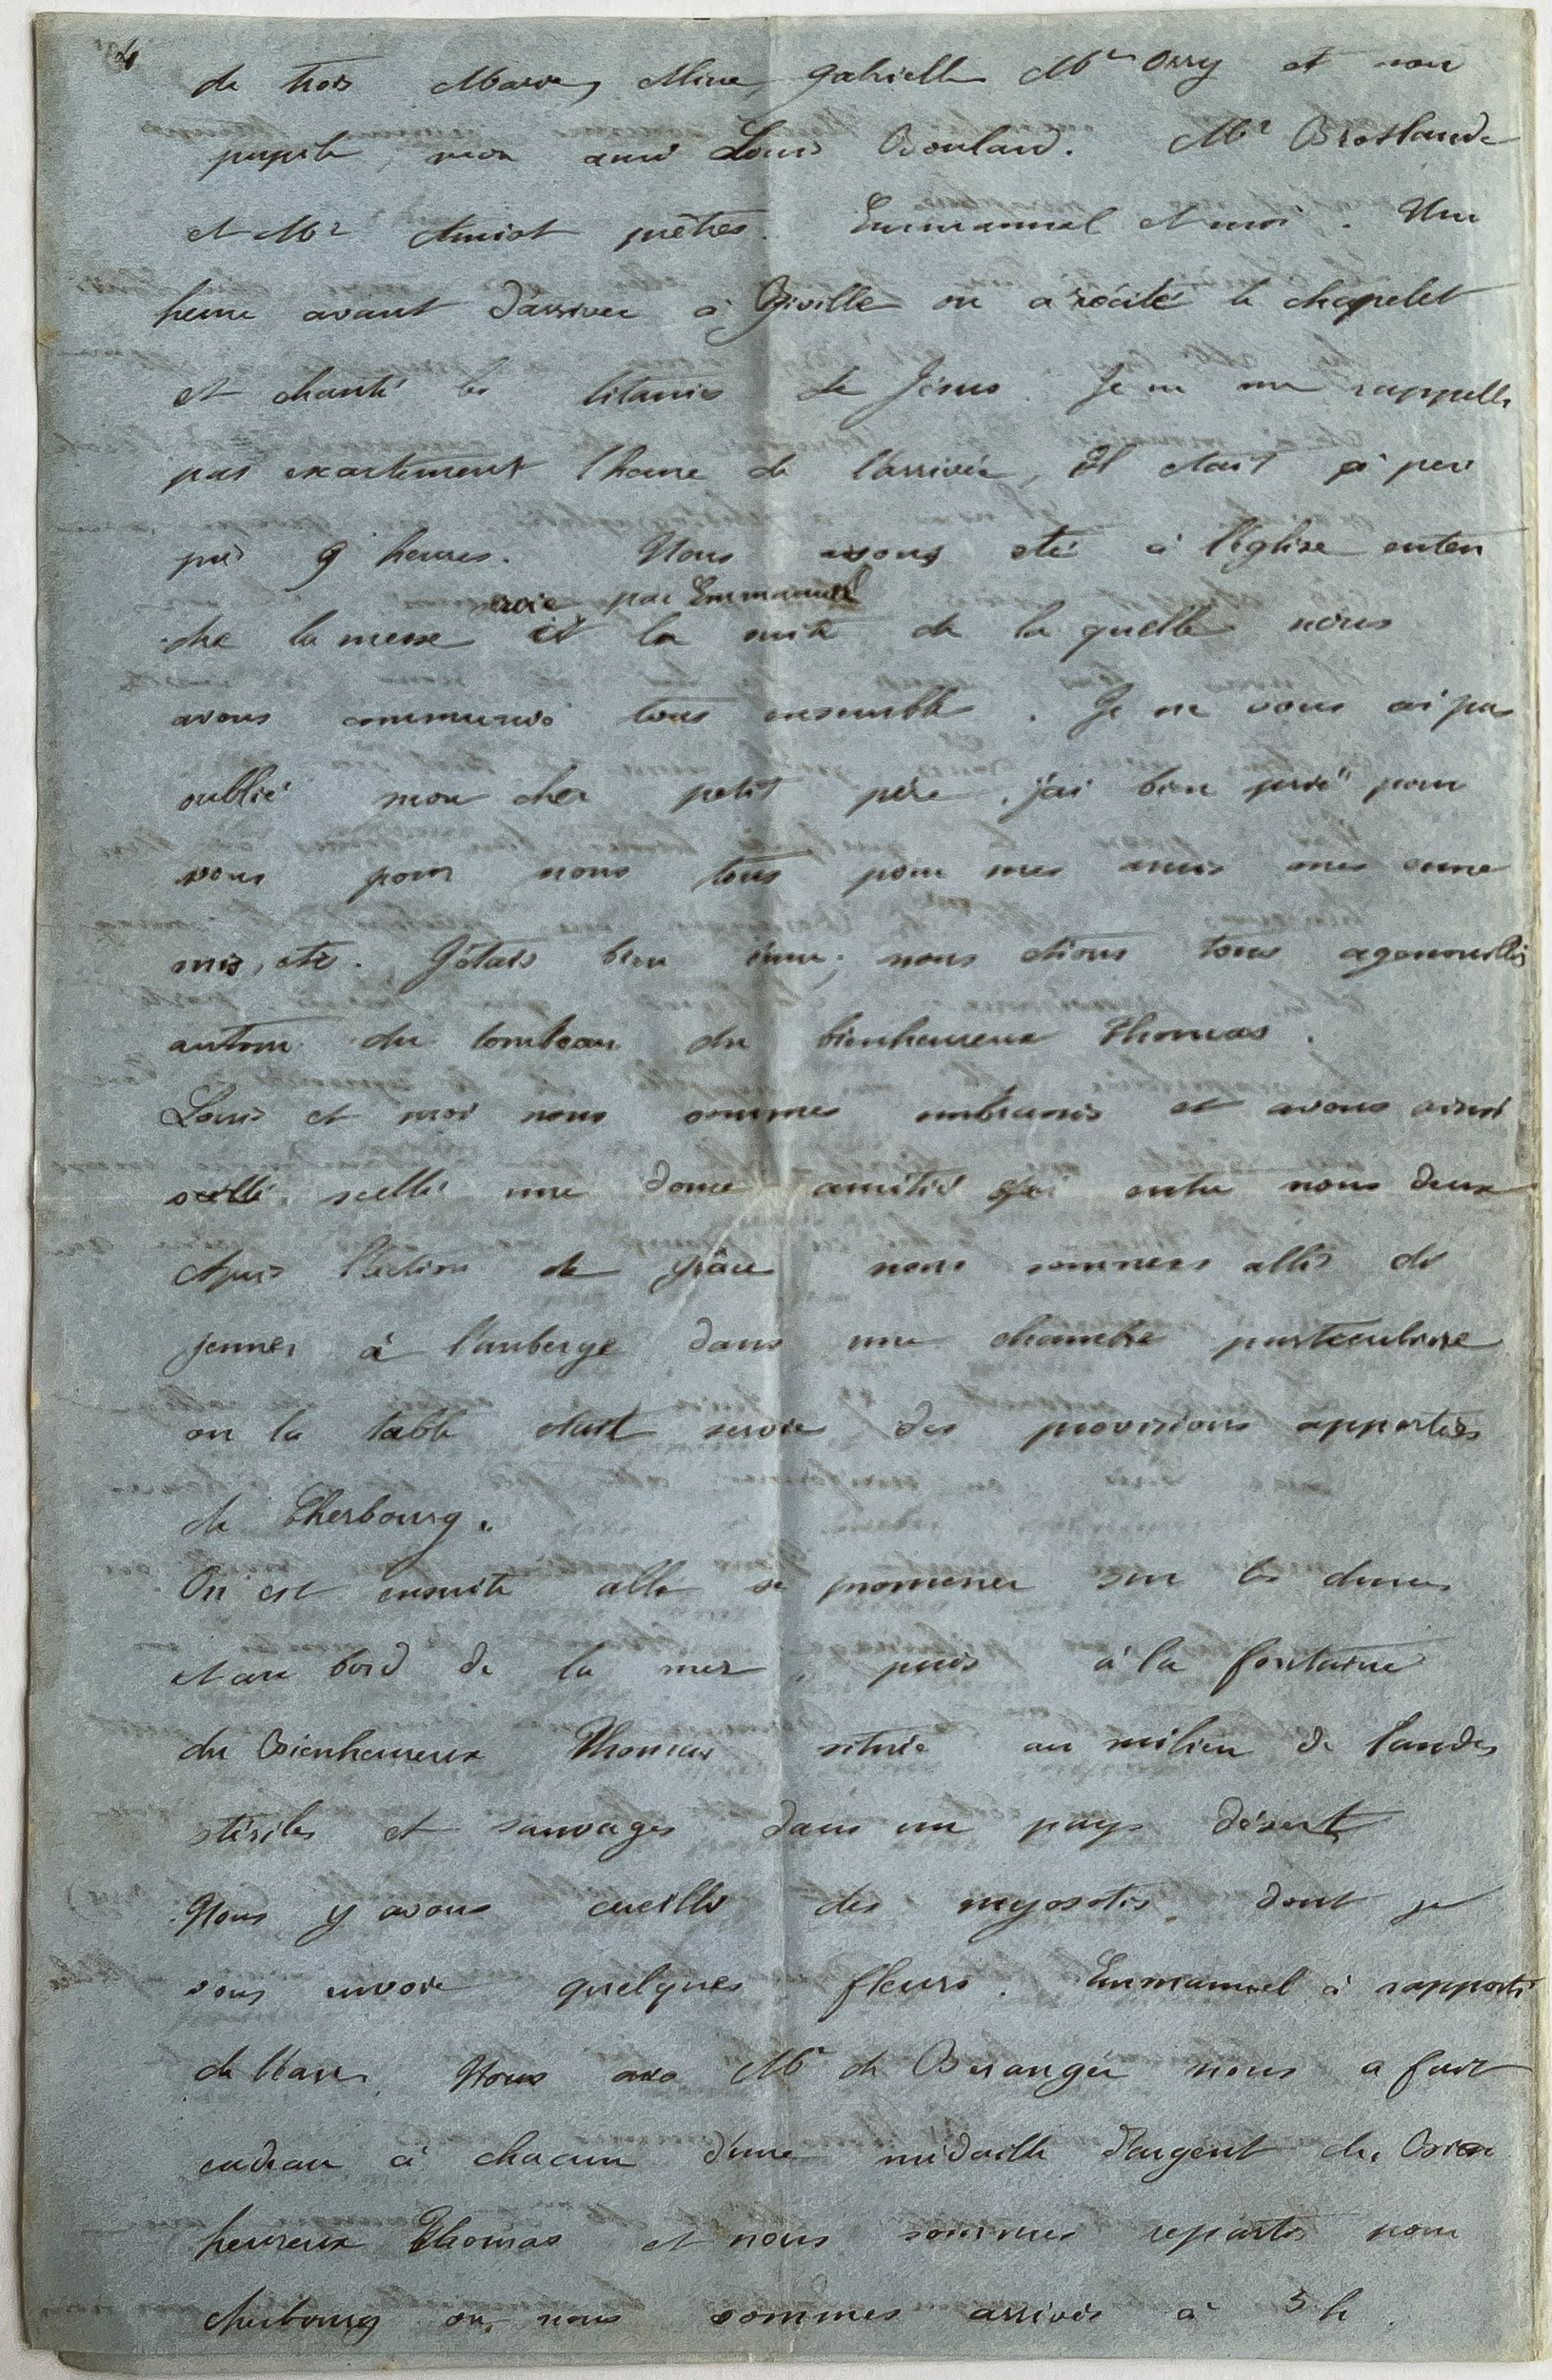 4
de trois Marie, Mme Gabrielle Mr Orry et son
pupile, mon ami Louis Boulard. Mr Brostlande
et Mr Amiot prêtres. Emmanuel et moi. Une
heure avant d'arriver à Biville on a récité le chapelet
et chanté les litanies de Jésus. Je ne me rappelle
pas exactement l'heure de l'arrivée, il était à peu
près 9 heures. Nous avons été à l'église enten
servie par Emmanuel
dre la messe et la suite de la quelle nous
avons communié tous ensemble. Je ne vous ai pas
oublié mon cher petit père, j'ai bien prié pour
vous pour nous tous pour mes amis mes enne
mis, etc. J'étais bien ému, nous étions tous agenouillés
autour du tombeau du bienheureux Thomas.
Louis et moi nous sommes embrassés et avons ainsi
scellé scellé une douce amitié entre nous deux
Après l'action de grâce nous sommes allés dé
jeuner à l'auberge dans une chambre particulière
ou la table était servie des provisions apportées
de Cherbourg.
On est ensuite allé se promener sur les dunes
et au bord de la mer, puis à la fontaine
du Bienheureux Thomas située au milieu de landes
stériles et sauvages dans un pays désert
Nous y avons cueilli des myosotis dont je
vous envoie quelques fleurs. Emmanuel a rapporté
de l'eau. Nous avo Mr de Beranger nous a fait
cadeau à chacun d'une médaille d'argent du Bien
heureux Thomas et nous sommes repartis pour
cherbourg ou nous sommes arrivés à 5 h.